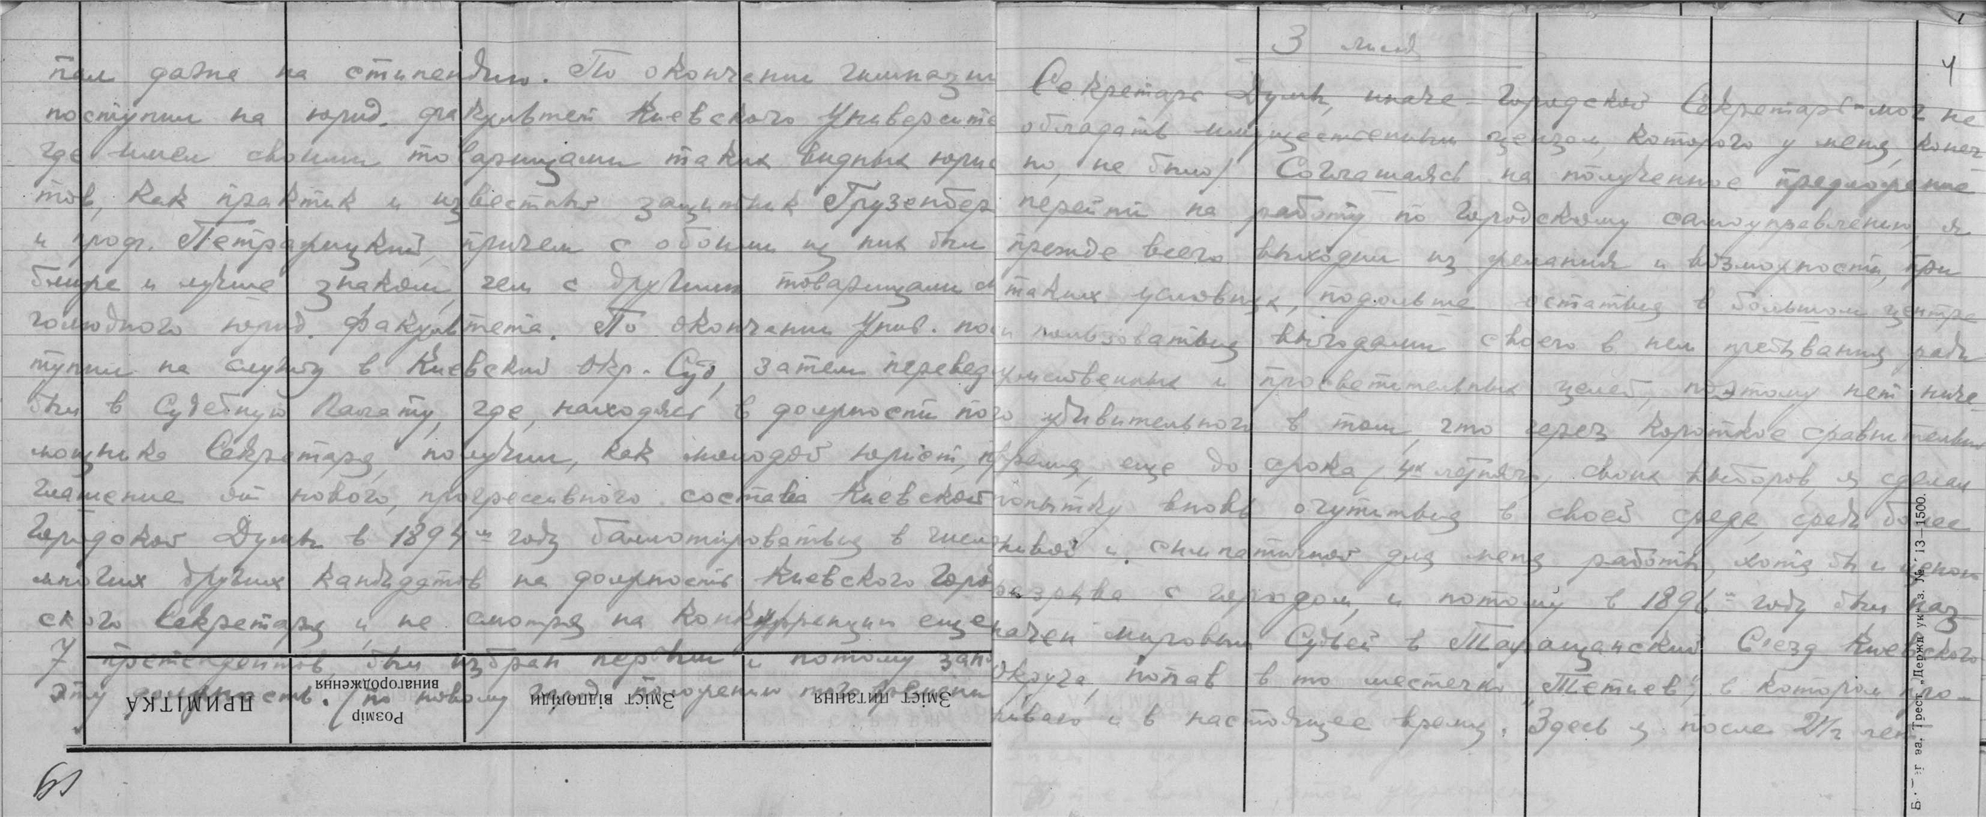 пал даже на стипендию. По окончании гимназии
поступил на юрид. факультет Киевского Университе
где имел своими товарищами таких видных юрис
тов, как практик и известный защитник Грузенбер
и проф. Петражицкий, причем с обоими из них был
ближе и лучше знаком, чем с другими товарищами
юрид. факультета. По окончании Унив. пос
тупил на службу в Киевский Окр. Суд, затем переведен
был в Судебную Палату, где, находясь в должности по
мощника Секретаря, получил, как молодой юрист, при
глашение от нового, прогрессивного состава Киевской
Городской Думы в 1894 м году баллотироваться в числе
многих других кандидатов на должность Киевского Город
ского Секретаря и, не смотря на конкуренции еще
7 претендентов, был избран первым и потому занял
эту должность. /по новому город. положению
ПРИМІТКА
Розмір винагородження
Зміст відповіди
Зміст питання
3 лист
4
Секретарь Думы, иначе – Городской Секретарь – мог не
обладать имущественным цензом, которого у меня, конеч
но, не было/ Соглашаясь на полученное предложение
перейти на работу по городскому самоуправлению, я
прежде всего выходил из желания и возможности, при
таких условиях, подольше остаться в большом центре
и пользоваться выгодами своего в нем пребывания ради
умственных и просветительных целей, поэтому нет ниче
го удивительного в том, что через короткое сравнительно
время, еще до срока, 4х летняго, своих выборов, я сделал
попытку вновь очутиться в своей среде, среди более
живой и симпатичной для меня работы, хотя бы и ценою
разрыва с городом, и потому в 1896 м году был наз
начен мировым Судьей в Таращанский Съезд Киевского
Округа, попав в то местечко „Тетиев“, в котором про–
живаю и в настоящее время. Здесь я после 2 1/2 лет